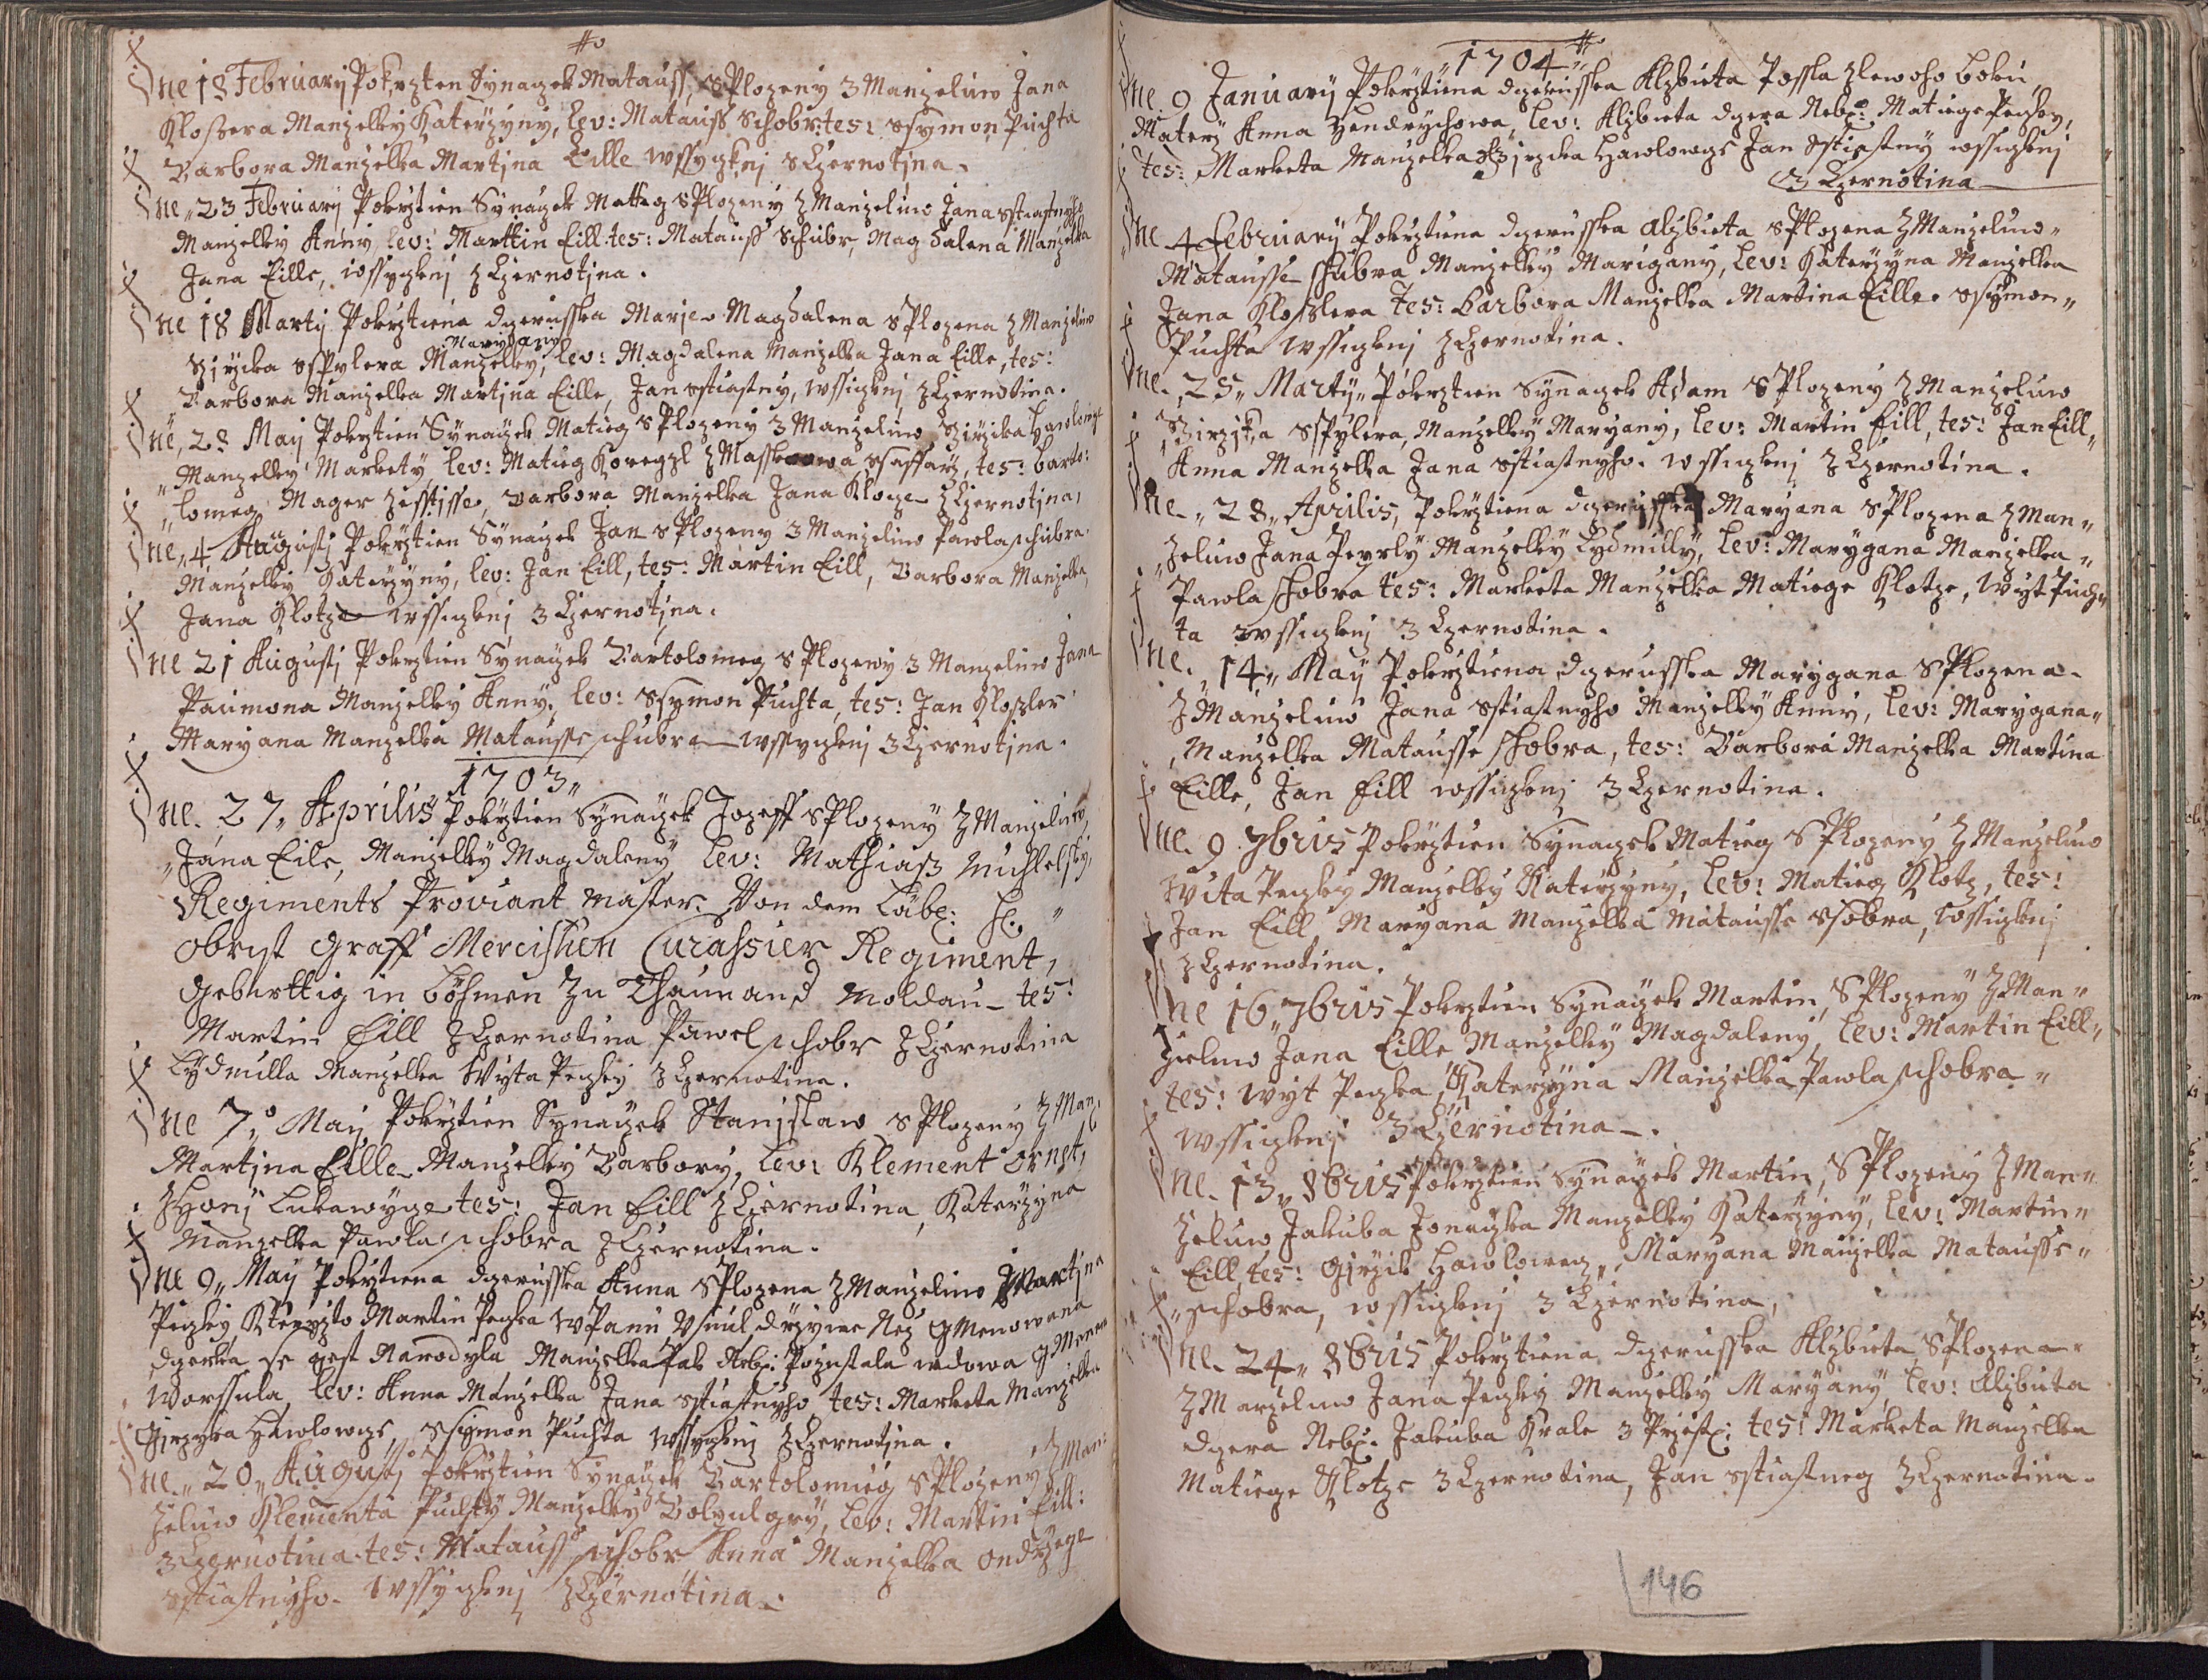 Dne 18 February Pokrzten Synagek Matauss, sPlozeny z Manzeluw Jana
Klossera Manzelky Katerzyny, lev: Matauss Schobr: tes: Ssymon Puchta
Barbora Manzelka Martjna Eille wssyczknj z Czernotjna.
Dne 23 February Pokrztien Synagek Matieg sPlozeny z Manzeluw Jana Sstiastnyho
Manzelky Anny, lev: Marttin Eill. tes: Matauss Schubr, Magdalena Manzelka
Jana Eille, wssyczknj z Czernotjna.
Dne 18 Marty Pokrztiena dczerusska Marje Magdalena sPlozena z Manzeluw
Girzjka Sspylera Manzelky Maryany, lev: Magdalena Manzelka Jana Eille, tes:
Barbora Manzelka Martjna Eille, Jan Sstiastny, wssiczknj z Czernotina.
Dne, 28 May Pokrztien Synagek Matieg sPlozeny z Manzeluw Girzjka Hawlowge
Manzelky Markety, lev: Matieg ssaffarz, tes: Barto:
lomeg Mager Barbora Manzelka Jana Kloze z Czernotjna,
Dne, 4 Augusti Pokrztien Synagek Jan sPlozeny z Manzeluw Pawla Schubra
Manzelky Katerzyny, lev: Jan Eill, tes: Martin Eill, Barbora Manzelka
Jana Klotze wssiczknj z Czernotjna.
Dne 21 Augusti Pokrztien Synagek Bartolomeg sPlozeny z Manzeluw Jana
Paumona Manzelky Anny, lev: Ssymon Puchta, tes: Jan Kloszler
Maryana Manzelka Matausse Schubra wssyczknj z Czernotjna.
1703
Dne 27 Aprilis Pokrztien Synagek Jozeff sPlozeny z Manzeluw,
Jana Eile, Manzelky Magdaleny, lev: Mathiasz
Regiments Proviant Master. Von dem Löbl:
Obrist Graff Mercischen Curassier Regiment,
Geburttig in Böhmen Zu Moldau - tes:
Martin Eill z Czernotina Pawel Schobr z Czernotina
Lydmilla Manzelka Wyta Peczky z Czernotina.
Dne 7 May Pokrztien Synagek Stanjslaw sPlozeny z Manz:
Martjna Eille Manzelky Barbory, lev: Klement Ornst,
z Honj Lukawyge tes: Jan Eill z Czernotina, Katerzyna
Manzelka Pawla Schobra z Czernotina.
Dne 9 May Pokrztiena dczerusska Anna sPlozena z Manzeluw Martjna
Peczky, Kteryzto Martin Peczka wPanu Usnul drzywe Nez gmenowana
dczerka se gest Narodyla Manzelka Pak Neb: Pozustala wdowa gmenem
Worssula, lev: Anna Manzelka Jana Sstiastnyho tes: Marketa Manzelka
Girzyka Hawlowge, Ssymon Puchta wssyczknj z Czernotjna.
Dne 20 Augusti Pokrztien Synagek Bartolomieg sPlozeny z Man:
zeluw Klementa Puchty Manzelky lev: Martin Eill:
z Czernotina tes: Matauss Schobr Anna Manzelka Ondrzege
Sstiastnyho wssyczknj z Czernotina.
1704
Dne 9 January Pokrztiena dczerusska Alzbieta Possla zlewoho boku
Materz Anna Hendrychowa, lev: Alzbieta dczera Neb: Matiege Peczky,
tes: Marketa Manzelka Girzjka Hawlowge Jan Sstiastny wssiczknj
z Czernotina
Dne 4 February Pokrztiena dczerusska Alzbieta sPlozena z Manzeluw
Matausse Schubra Manzelky Marigany, lev: Katerzyna Manzelka
Jana Klosslera tes: Barbora Manzelka Martina Eille Ssymon
Puchta wssiczknj z Czernotina.
Dne 25 Marty Pokrztien Synagek Adam sPlozeny z Manzeluw
Girzjka Sspylera, Manzelky Maryany, lev: Martin Eill, tes: Jan Eill
Anna Manzelka Jana Sstiastnyho. wssiczknj z Czernotina.
Dne 28 Aprilis, Pokrztiena dczerusska Maryana sPlozena z Man
zeluw Jana Peyrly Manzelky Lydmilly, lev: Marygana Manzelka
Pawla Schobra tes: Marketa Manzelka Matiege Klotze, Wyt Puch
ta wssiczknj z Czernotina.
Dne 14 May Pokrztiena dczerusska Marygana sPlozena
z Manzeluw Jana Sstiastnyho Manzelky Anny, lev: Marygana
Manzelka Matausse Schobra, tes: Barbora Manzelka Martina
Eille, Jan Eill wssiczknj z Czernotina.
Dne 9 7bris Pokrztien Synagek Matieg sPlozeny z Manzeluw
Wita Peczky Manzelky Katerzyny, lev: Matieg Klotz, tes:
Jan Eill, Maryana Manzelka Matausse Ssobra, wssiczknj
z Czernotina.
Dne 16 7bris Pokrztien Synagek Martin, sPlozeny z Man
zieluw Jana Eille Manzelky Magdaleny, lev: Martin Eill
tes: Wyt Peczka, Katerzyna Manzelka Pawla Schobra
wssiczknj z Czernotina.
Dne 13 8bris Pokrztien Synagek Martin, sPlozeny z Man
zeluw Jakuba Jonaczka Manzelky Katerzyny, lev: Martin
Eill, tes: Girzik Hawloweg, Maryana Manzelka Matausse
Schobra, wssiczknj z Czernotina,
Dne 24 8bris Pokrztiena dczerusska Alzbieta sPlozena
z Manzeluw Jana Peczky Manzelky Maryany, lev: Alzbieta
dczera Neb: Jakuba Krale z Przest: tes: Marketa Manzelka
Matiege Klotze z Czernotina, Jan Sstiastneg z Czernotina.
146